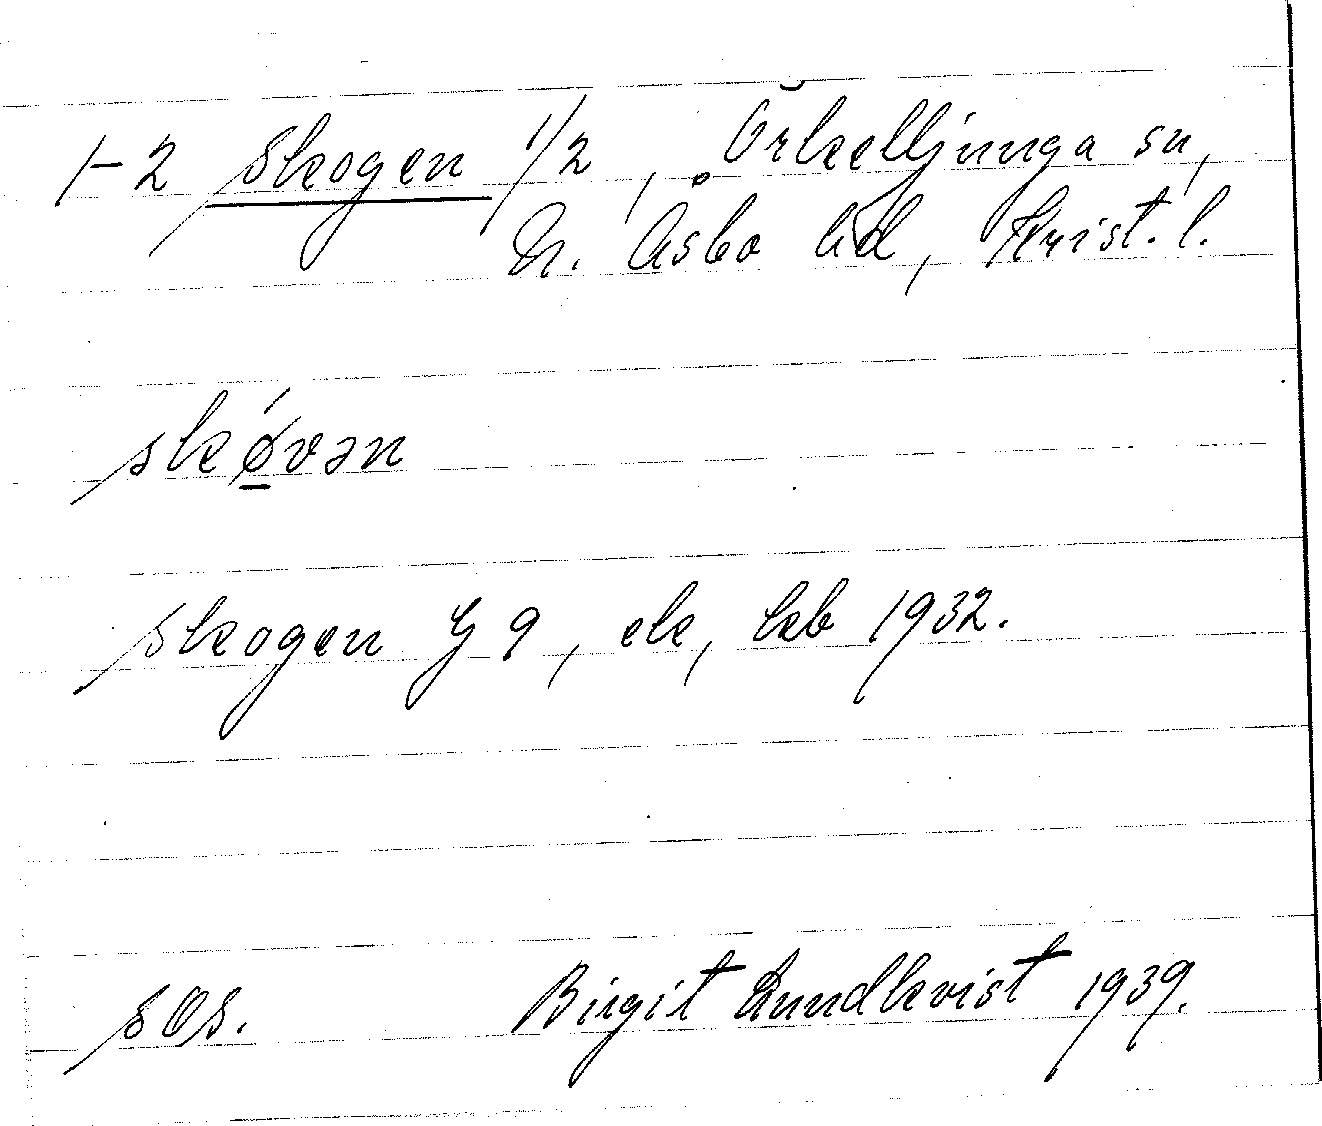 1-2 Skogen 1/2, Örkelljunga sn,
N. Åsbo hd, Krist. l.
skǿvən
Skogen G 9, ek, kb 1932.
s Os. Birgit Lundkvist 1939.